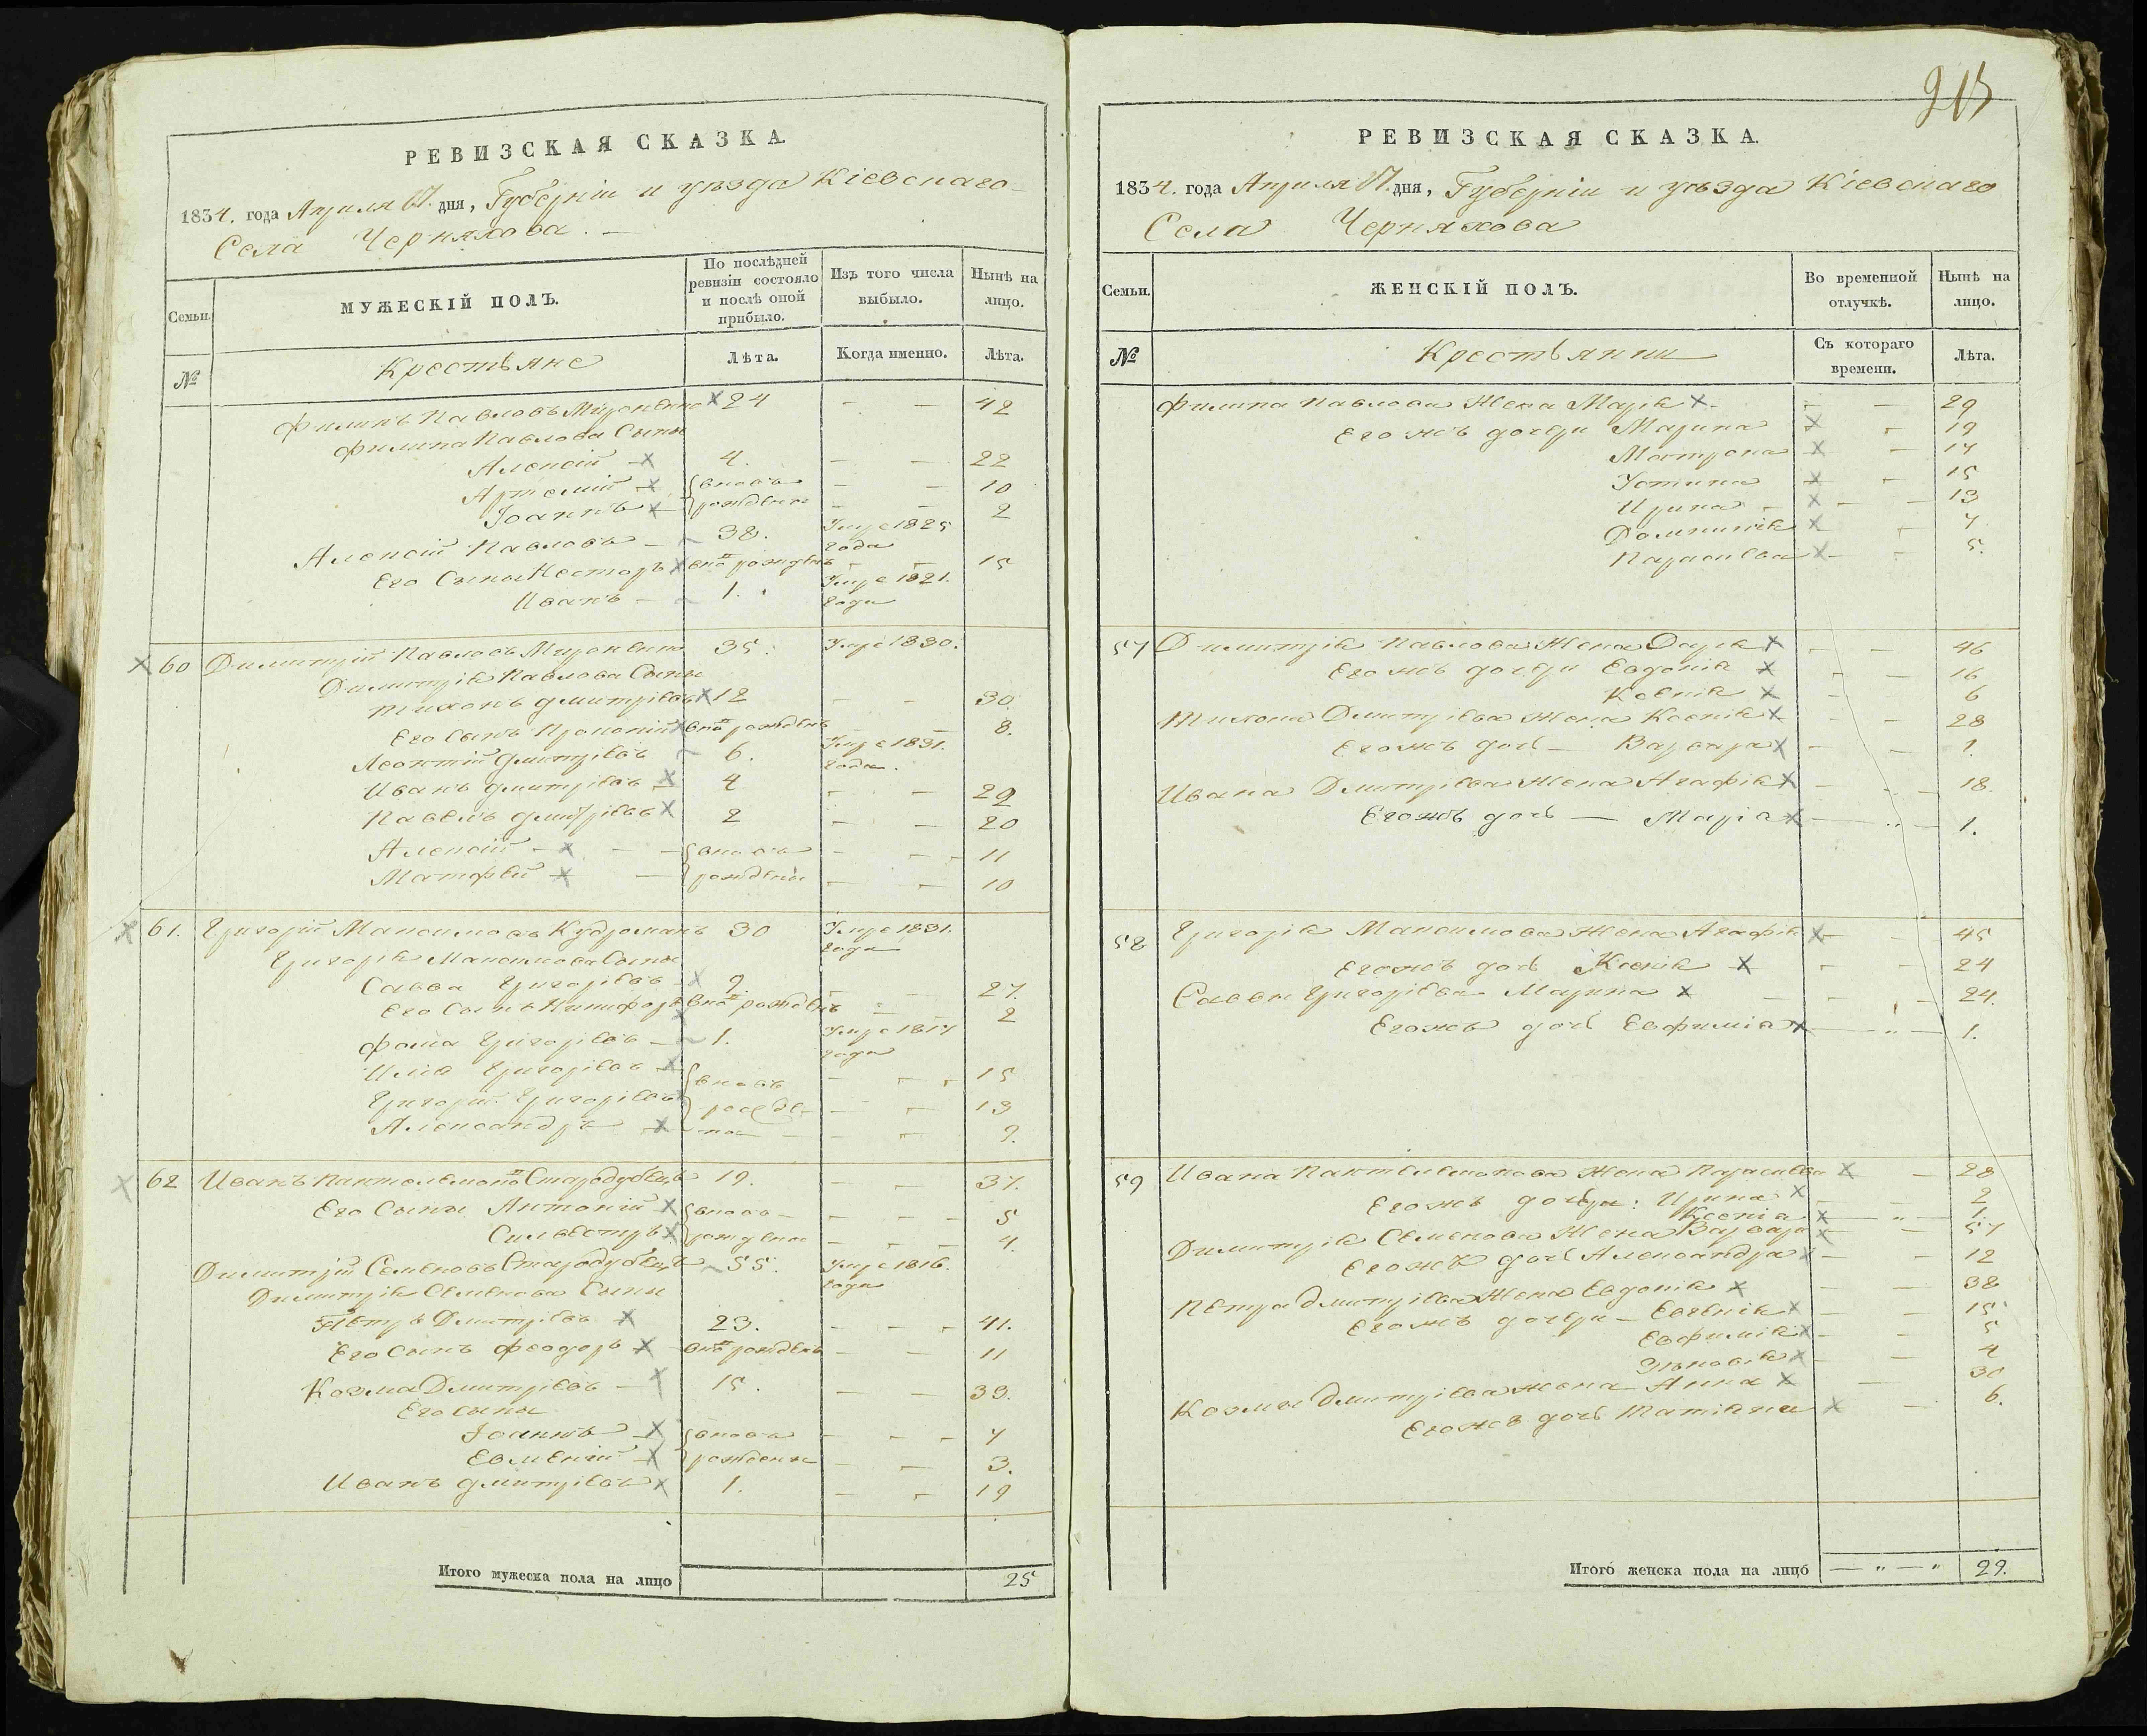 РЕВИЗСКАЯ СКАЗКА.
1834. года Апреля 17. дня, Губерніи и уѣзда Кіевскаго
Села Черняхова.
Семьи.
МУЖЕСКІЙ ПОЛЪ.
По послѣдней ревизіи состояло и послѣ оной прибыло.
Изъ того числа выбыло.
Нынѣ на лицо.
№
Крестьяне
Лѣта.
Когда именно.
Лѣта.
Филипъ Павловъ 24 — — 42
Филипа Павлова Сыны
Алексій 4. — — 22
Артемій вновь — — 10
Іоаннъ рождены — — 2
Алексій Павловъ 38. Умре 1825 года
Его Сыны Несторъ внов рожденъ — — 15
Иванъ 1. Умре 1821. года
60 Димитрій Павловъ 35. Умре 1830.
Димитрія Павлова Сыны
Тихонъ Дмитріевъ 12 — — 30
Его Сынъ Прокопій внов рожденъ — — 8.
Леонтій Дмитріевъ 6. Умре 1831. года.
Иванъ Дмитріевъ 4 — — 22
Павелъ Дмитріевъ 2 — — 20
Алексій вновь — — 11
Матфей рождены — — 10
61. Григорій Максимовъ 30 Умре 1831. года
Григорія Максимова Сыны
Савва Григоріевъ 9. — — 27.
Его Сынъ Никифоръ внов рожденъ — — 2
Фома Григоріевъ 1. Умре 1817 года
Илія Григоріевъ вновь — — 15
Григорій Григоріевъ рожде- — — 13
Александръ ны — — 9.
62 Иванъ Стародубецъ 19. — — 37.
Его Сыны Антоній вновь — — 5
Сильвестръ рождены — — 4.
Димитрій Семеновъ Стародубецъ 55. Умре 1816. года
Димитрія Семенова Сыны
Петръ Дмитріевъ 23. — — 41.
Его Сынъ Феодоръ внов рожденъ — — 11
Козма Дмитріевъ 15. — — 33.
Его Сыны
Іоаннъ вновь — — 7
рождены — — 3.
Иванъ Дмитріевъ 1. — — 19
Итого мужеска пола на лицо 25
РЕВИЗСКАЯ СКАЗКА.
1834. года Апреля 17. дня, Губерніи и уѣзда Кіевскаго
Села Черняхова
Семьи.
ЖЕНСКІЙ ПОЛЪ.
Во временной отлучкѣ.
Нынѣ на лицо.
№
Крестьянки
Съ котораго времени.
Лѣта.
Филипа Павлова Жена Марія — — 39
Его жъ дочери Марина — 19
Матрона — 17
Устина — 15
Ирина — — 13
Домникія — 7
Параскева — — 5.
57 Димитрія Павлова Жена Дарія — — 46
Его жъ дочери Евдокія — — 16
Ксенія — 6
Тихона Дмитріева Жена Ксенія — — 28
Его жъ дочь — Варвара — — 1.
Ивана Дмитріева Жена Агафія — — 18.
Его жъ дочь — Марія — „ — 1.
58 Григорія Максимова Жена Агафія — — 45
Его жъ дочь Ксенія — — 24
Саввы Григоріева Марина — — 24.
Его жъ дочь Евфимія — „ — 1.
59 Ивана Жена Параскева — 28
Его жъ дочери: Ирина — 2
Ксенія — „ — 1.
Димитрія Семенова Жена Варвара — 57
Его жъ дочь Александра — — 12
Петра Дмитріева Жена Евдокія — — 38
Его жъ дочери — Евгенія — — 15
Евфимія — — 5
— — 4
Козмы Дмитріева жена Анна — 30
Его жъ дочь Татіана — 6.
Итого женска пола на лицо — „ — „ 29.